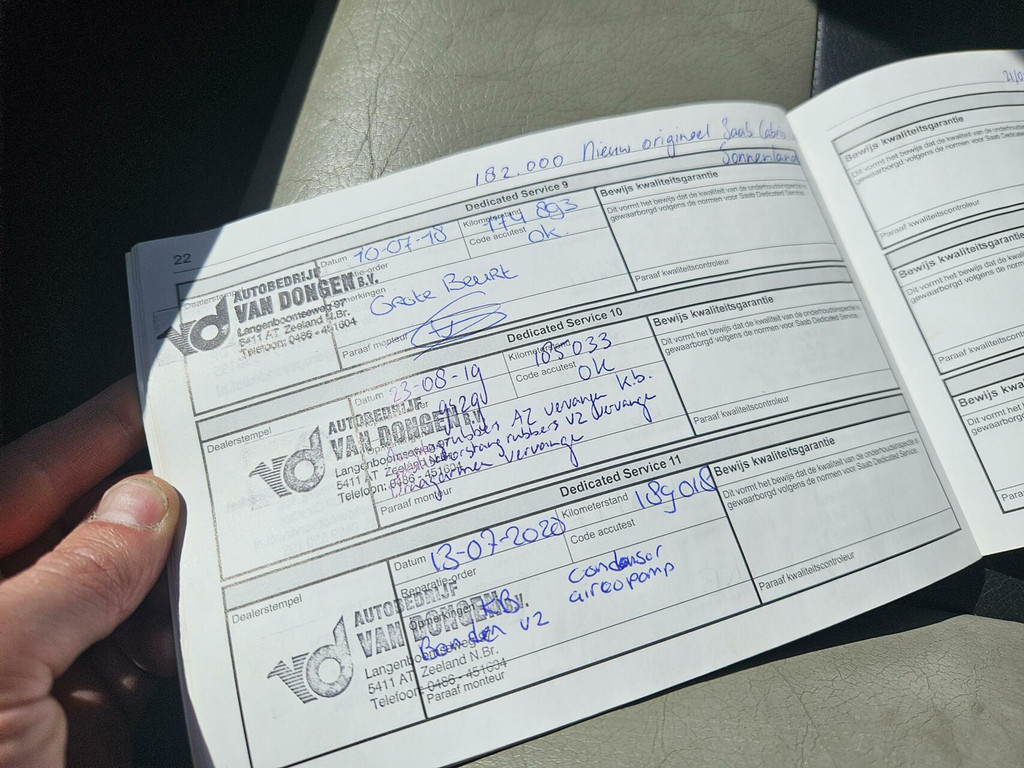 182.000 Nieuw origineel Saab Cabrio
Sonnenland
22
Dedicated Service 9
Datum 10-07-18
Kilometerstand 174 893
Code accutest ok.
AUTOBEDRIJF
VAN DONGEN B.V.
Langenboomseweg 97
5411 AT Zeeland N.Br.
Telefoon: 0486 - 451604
Grote Beurt
Paraaf monteur
Bewijs kwaliteitsgarantie
Dit vormt het bewijs dat de kwaliteit van de onderhoudsinspectie is
gewaarborgd volgens de normen voor Saab Dedicated Service.
Paraaf kwaliteitscontroleur
Dedicated Service 10
Dealerstempel
Datum 23-08-19
Kilometerstand 185033
Code accutest OK
AUTOBEDRIJF
VAN DONGEN B.V.
Langenboomseweg
5411 AT Zeeland N.Br.
Telefoon: 0486 - 451604
rubbers AZ vervangen kb.
rubbers VZ vervangen
Draagarmen vervangen
Paraaf monteur
Bewijs kwaliteitsgarantie
Dit vormt het bewijs dat de kwaliteit van de onderhoudsinspectie is
gewaarborgd volgens de normen voor Saab Dedicated Service.
Paraaf kwaliteitscontroleur
Dedicated Service 11
Dealerstempel
Datum 13-07-2020
Kilometerstand 189018
Code accutest
Reparatie-order
AUTOBEDRIJF
VAN DONGEN B.V.
Langenboomseweg
5411 AT Zeeland N.Br.
Telefoon: 0486 - 451604
Opmerkingen KB. condensor
Banden VZ aircopomp
Paraaf monteur
Bewijs kwaliteitsgarantie
Dit vormt het bewijs dat de kwaliteit van de onderhoudsinspectie is
gewaarborgd volgens de normen voor Saab Dedicated Service.
Paraaf kwaliteitscontroleur
Bewijs kwaliteitsgarantie
Dit vormt het bewijs dat de kwaliteit van de onderhouds
gewaarborgd volgens de normen voor Saab Dedicated
Paraaf kwaliteitscontroleur
Bewijs kwaliteitsgarantie
Dit vormt het bewijs dat de kwaliteit van de
gewaarborgd volgens de normen voor Saab
Paraaf kwaliteitscontroleur
Bewijs kwaliteitsgarantie
Dit vormt het bewijs dat de
gewaarborgd volgens de
Paraaf